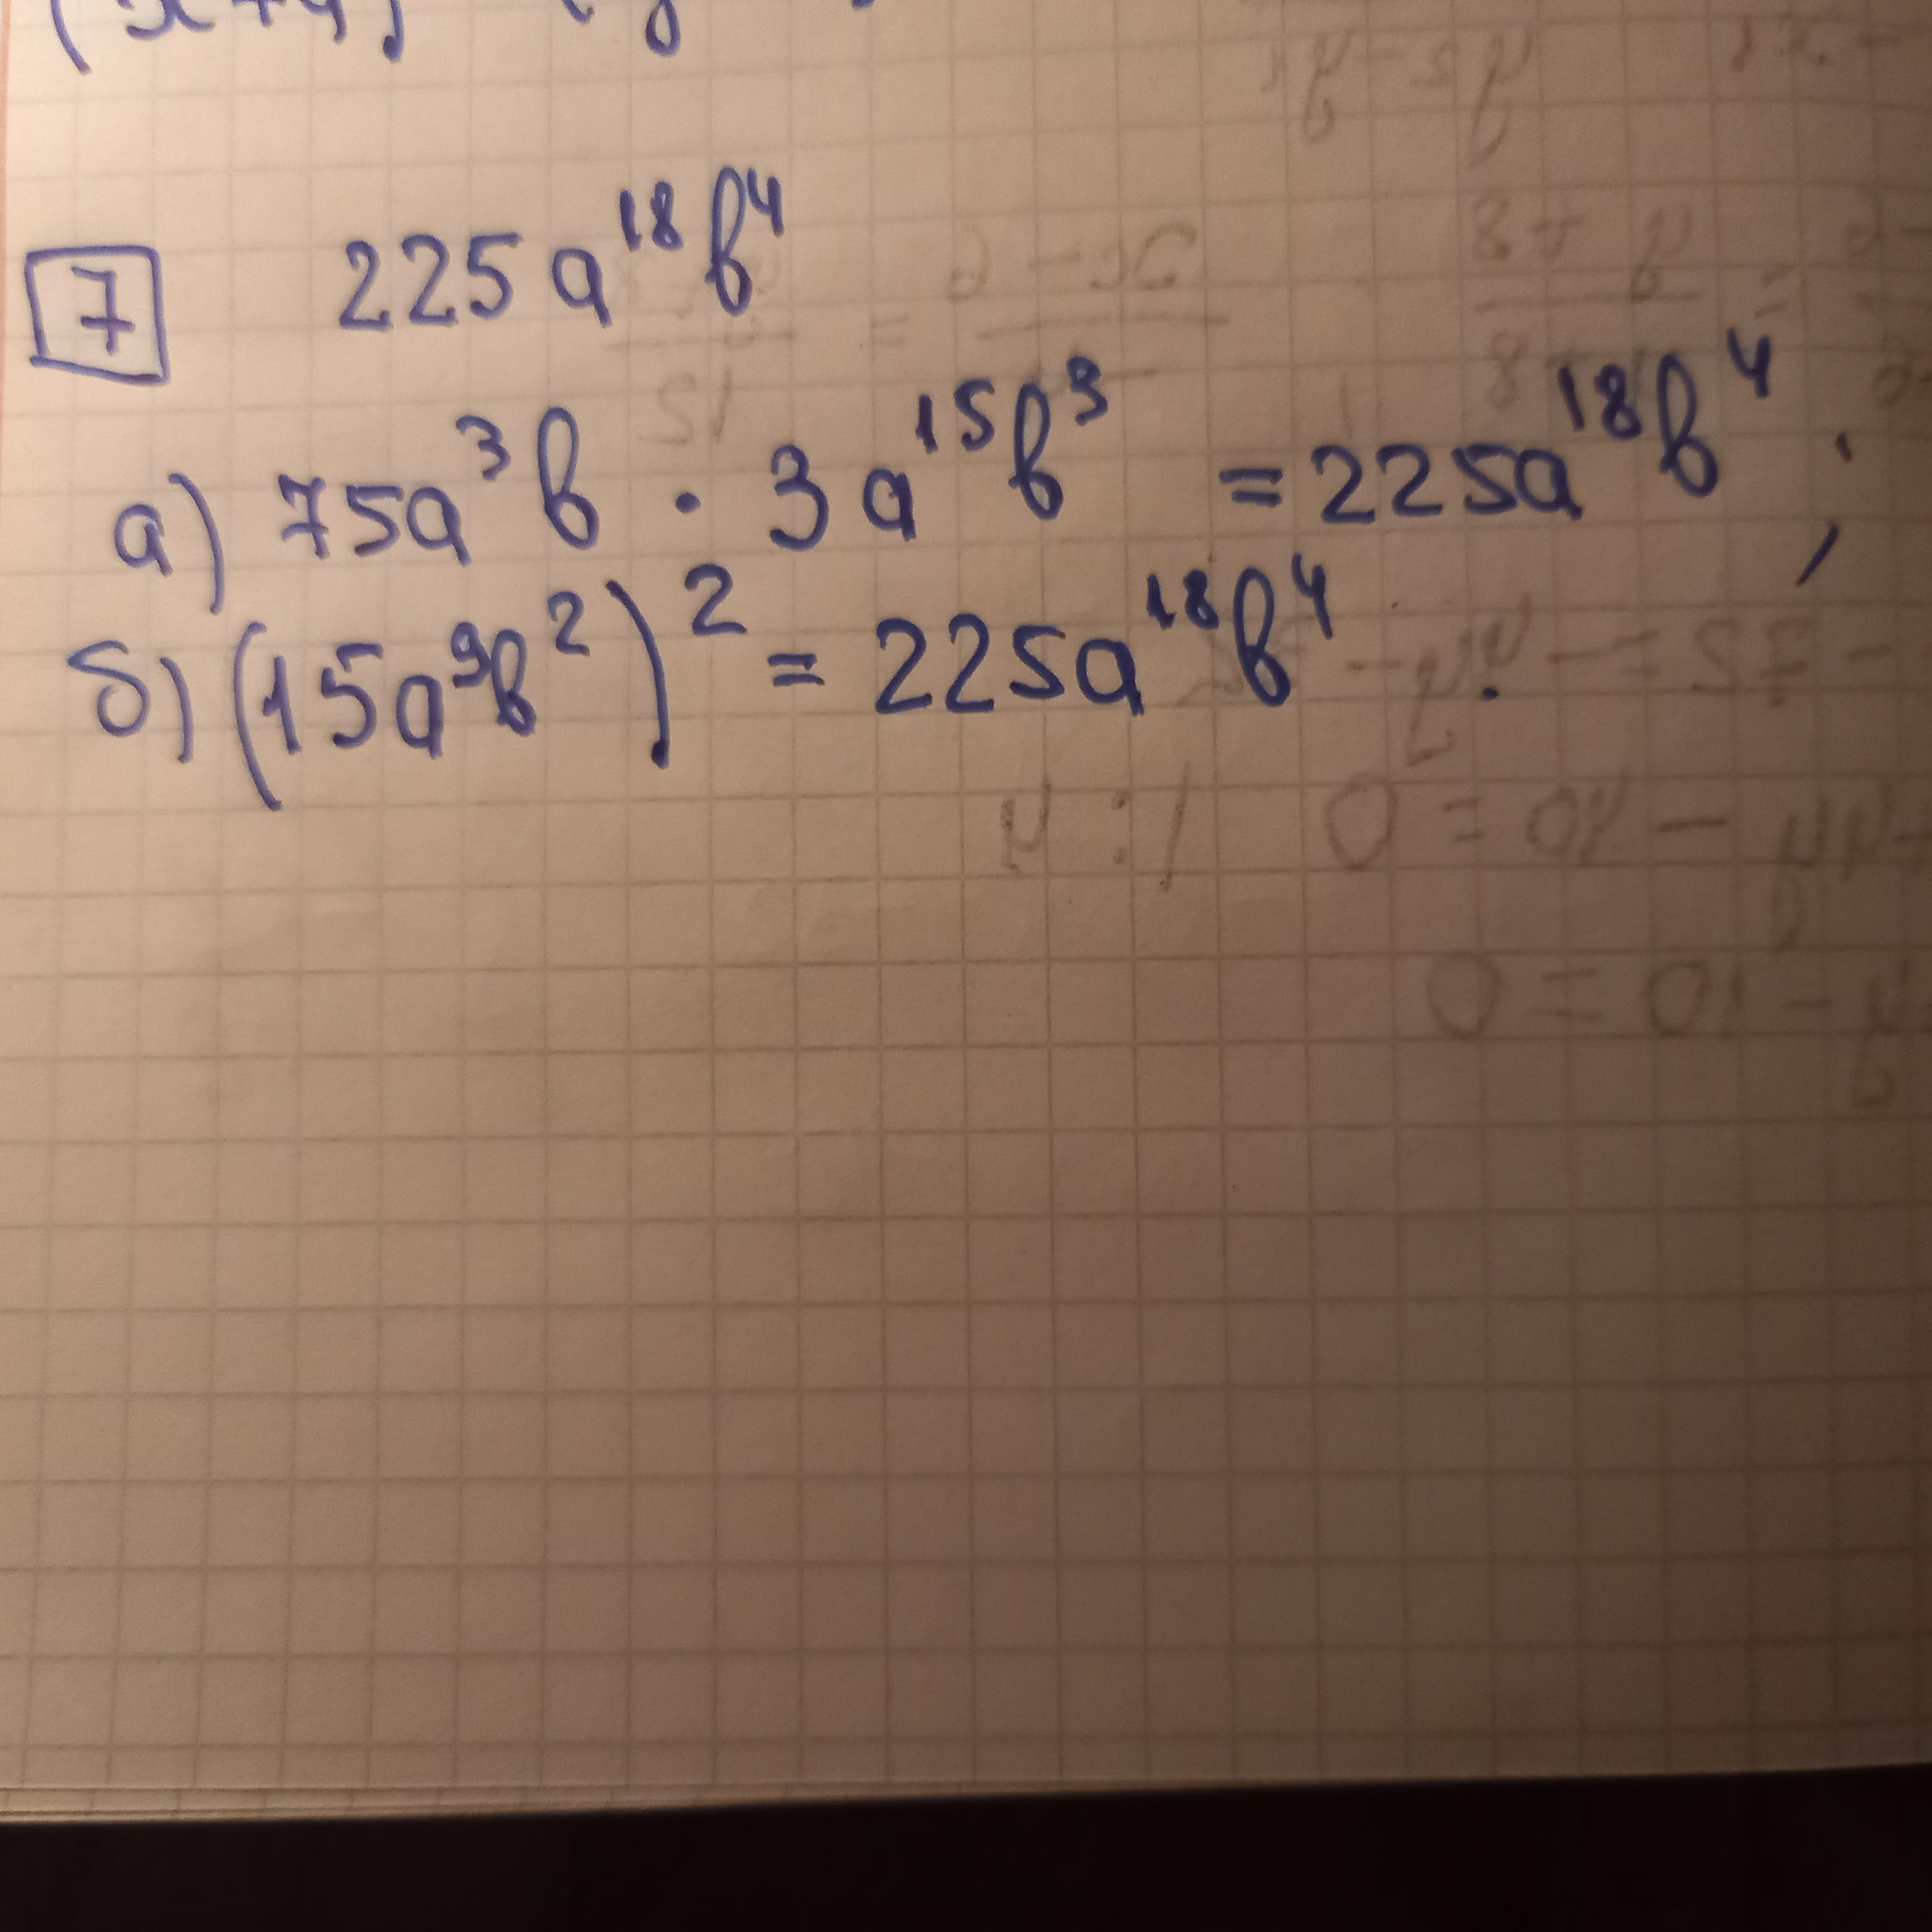 7 225a¹⁸b⁴
а) 75a³b · 3a¹⁵b³ = 225a¹⁸b⁴;
б) (15a⁹b²)² = 225a¹⁸b⁴.